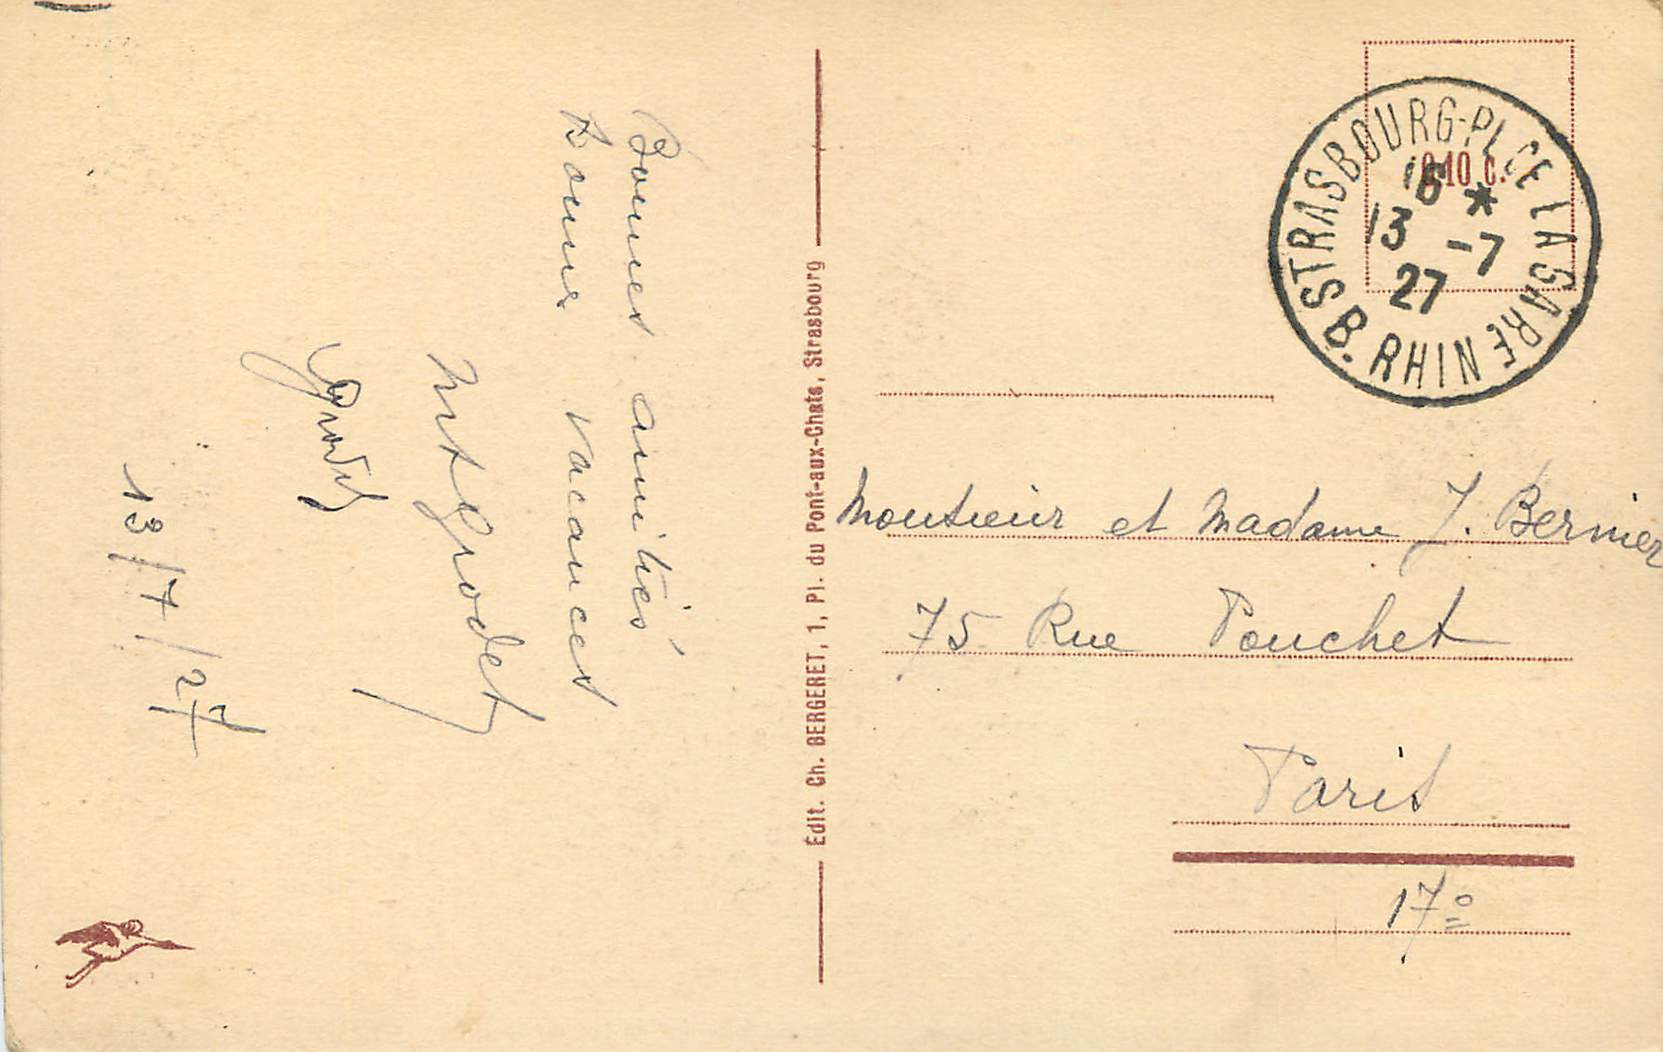 Bonnes amitiés
Bonnes vacances
Grodet
13/7/27
Edit. Ch. BERGERET, 1, Pl. du Pont-aux-Chats, Strasbourg
0,10 c.
STRASBOURG-PLCE LA GARE
16 *
13 -7
27
B. RHIN
Monsieur et Madame J. Bernier
75 Rue Pouchet
Paris
17º